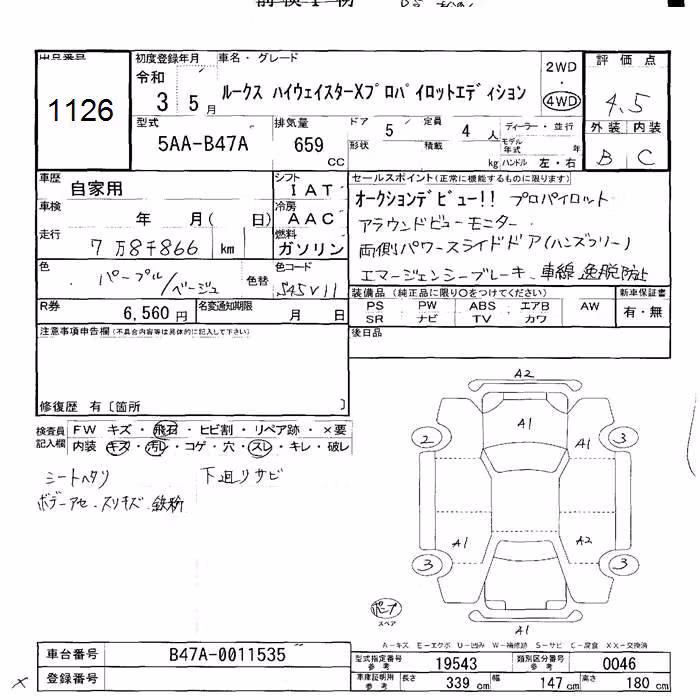 出品番号
1126
初度登録年月
車名・グレード
令和
3 5月
ルークス ハイウェイスターXプロパイロットエディション
2WD
・
4WD
評価点
4.5
外装 内装
B C
型式
5AA-B47A
排気量
659
CC
ドア 5 定員 4 人
形状 積載 kg
ディーラー・並行
モデル年式 年
ハンドル 左・右
車歴
自家用
シフト
IAT
車検
年 月( 日)
冷房
AAC
走行
7万8千866 km
燃料
ガソリン
色
パープル/ベージュ
色替
色コード
S45V11
R券
6,560円
名変通知期限
月 日
セールスポイント(正常に機能するものに限ります)
オークションデビュー!! プロパイロット
アラウンドビューモニター
両側パワースライドドア(ハンズフリー)
エマージェンシーブレーキ・車線逸脱防止
装備品(純正品に限り○をつけてください)
PS PW ABS エアB AW
SR ナビ TV カワ
新車保証書
有・無
後日品
注意事項申告欄(不具合内容等は具体的に記入して下さい)
修復歴 有〔箇所 〕
検査員記入欄
FW キズ・飛石・ヒビ割・リペア跡・×要
内装 キズ・汚レ・コゲ・穴・スレ・キレ・破レ
シートヘタリ 下廻りサビ
ボデーアセ・スリキズ・鉄粉
A2
A1
2
A1
3
A1
A2
3
3
A1
スペア
A-キズ E-エクボ U-凹み W-補修跡 S-サビ C-腐食 XX-交換済
車台番号
B47A-0011535
登録番号
型式指定番号 参考
19543
類別区分番号 参考
0046
車庫証明用 参考
長さ 339 cm 幅 147 cm 高さ 180 cm